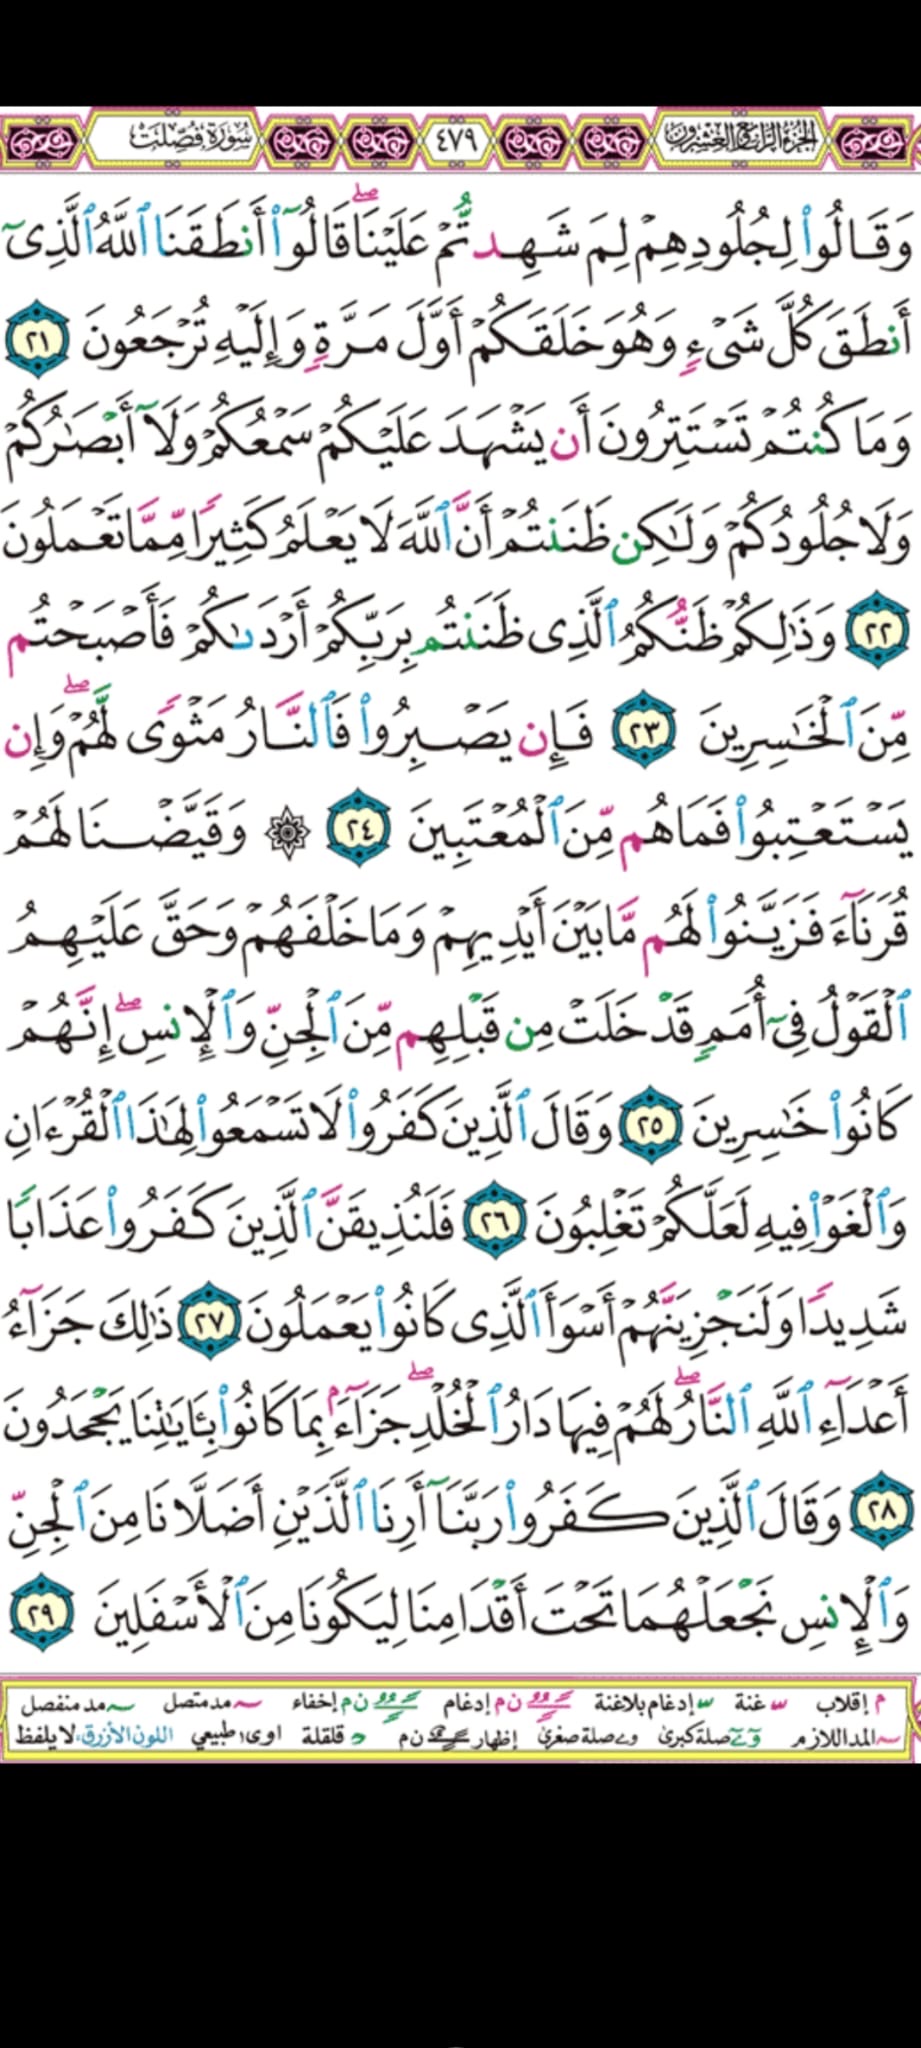 الجزء الرابع والعشرون ٤٧٩ سورة فصلت
وَقَالُوا۟ لِجُلُودِهِمْ لِمَ شَهِدتُّمْ عَلَيْنَا ۖ قَالُوٓا۟ أَنطَقَنَا ٱللَّهُ ٱلَّذِىٓ
أَنطَقَ كُلَّ شَىْءٍ وَهُوَ خَلَقَكُمْ أَوَّلَ مَرَّةٍ وَإِلَيْهِ تُرْجَعُونَ ٢١
وَمَا كُنتُمْ تَسْتَتِرُونَ أَن يَشْهَدَ عَلَيْكُمْ سَمْعُكُمْ وَلَآ أَبْصَـٰرُكُمْ
وَلَا جُلُودُكُمْ وَلَـٰكِن ظَنَنتُمْ أَنَّ ٱللَّهَ لَا يَعْلَمُ كَثِيرًا مِّمَّا تَعْمَلُونَ
٢٢ وَذَٰلِكُمْ ظَنُّكُمُ ٱلَّذِى ظَنَنتُم بِرَبِّكُمْ أَرْدَىٰكُمْ فَأَصْبَحْتُم
مِّنَ ٱلْخَـٰسِرِينَ ٢٣ فَإِن يَصْبِرُوا۟ فَٱلنَّارُ مَثْوًى لَّهُمْ ۖ وَإِن
يَسْتَعْتِبُوا۟ فَمَا هُم مِّنَ ٱلْمُعْتَبِينَ ٢٤ ۞ وَقَيَّضْنَا لَهُمْ
قُرَنَآءَ فَزَيَّنُوا۟ لَهُم مَّا بَيْنَ أَيْدِيهِمْ وَمَا خَلْفَهُمْ وَحَقَّ عَلَيْهِمُ
ٱلْقَوْلُ فِىٓ أُمَمٍ قَدْ خَلَتْ مِن قَبْلِهِم مِّنَ ٱلْجِنِّ وَٱلْإِنسِ ۖ إِنَّهُمْ
كَانُوا۟ خَـٰسِرِينَ ٢٥ وَقَالَ ٱلَّذِينَ كَفَرُوا۟ لَا تَسْمَعُوا۟ لِهَـٰذَا ٱلْقُرْءَانِ
وَٱلْغَوْا۟ فِيهِ لَعَلَّكُمْ تَغْلِبُونَ ٢٦ فَلَنُذِيقَنَّ ٱلَّذِينَ كَفَرُوا۟ عَذَابًا
شَدِيدًا وَلَنَجْزِيَنَّهُمْ أَسْوَأَ ٱلَّذِى كَانُوا۟ يَعْمَلُونَ ٢٧ ذَٰلِكَ جَزَآءُ
أَعْدَآءِ ٱللَّهِ ٱلنَّارُ ۖ لَهُمْ فِيهَا دَارُ ٱلْخُلْدِ ۖ جَزَآءًۢ بِمَا كَانُوا۟ بِـَٔايَـٰتِنَا يَجْحَدُونَ
٢٨ وَقَالَ ٱلَّذِينَ كَفَرُوا۟ رَبَّنَآ أَرِنَا ٱلَّذَيْنِ أَضَلَّانَا مِنَ ٱلْجِنِّ
وَٱلْإِنسِ نَجْعَلْهُمَا تَحْتَ أَقْدَامِنَا لِيَكُونَا مِنَ ٱلْأَسْفَلِينَ ٢٩
م إقلاب غنة إدغام بلاغنة ن م إدغام ن م إخفاء مد متصل مد منفصل
المد اللازم صلة كبرى صلة صغرى إظهار ن م قلقلة اوى طبيعي اللون الأزرق: لا يلفظ